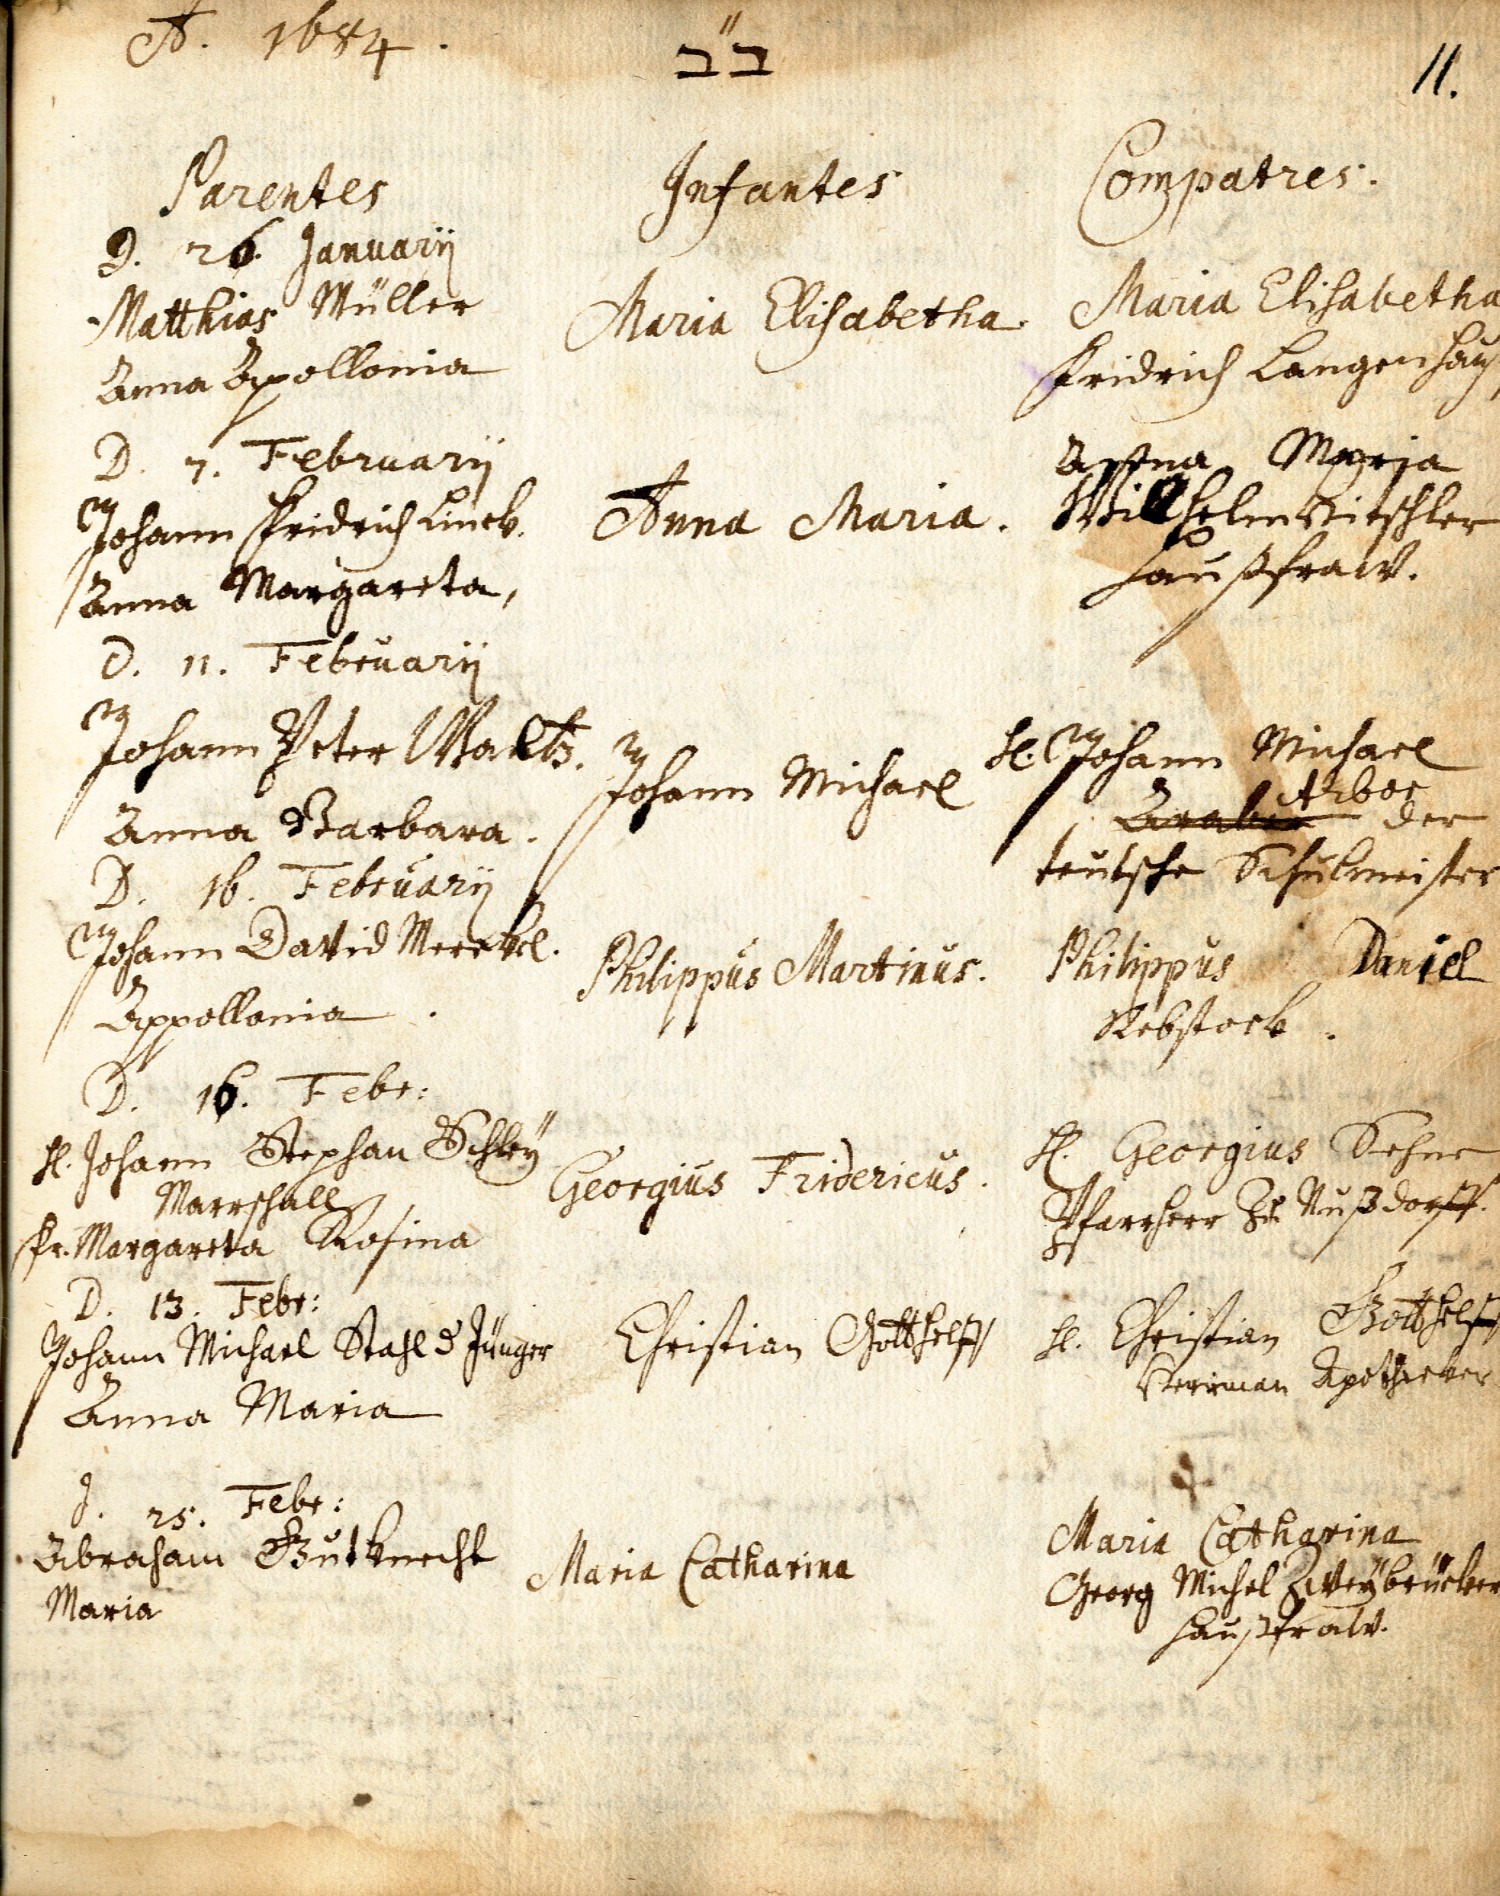 A. 1684.
ב״ב
11.
Parentes
Infantes
Compatres.
D. 26. Januarij
Matthias Müller
Anna Apollonia
Maria Elisabetha.
Maria Elisabetha
Fridrich Langenhauß
D. 7. Februarij
Johann Fridrich Linck.
Anna Margareta,
Anna Maria.
Anna Maria
Wilhelm Nitschler
Haußfraw.
D. 11. Februarij
Johann Peter Waltz.
Anna Barbara.
Johann Michael
H. Johann Michael
Araber Arboe der
teutsche Schulmeister
D. 16. Februarij
Johann David Merckel.
Appollonia.
Philippus Martinus.
Philippus Daniel
Rebstock.
D. 16. Febr:
H. Johann Stephan Schleÿ
Marschall
Fr. Margareta Rosina
Georgius Fridericus.
H. Georgius Sehne
Pfarrherr zu Nußdorff.
D. 13. Febr:
Johann Michael Stahl d Jünger
Anna Maria
Christian Gotthelff
H. Christian Gotthelff
Apothecker
D. 25. Febr:
Abraham Gutknecht
Maria
Maria Catharina
Maria Catharina
Georg Michel Zweÿbrücker
Haußfraw.